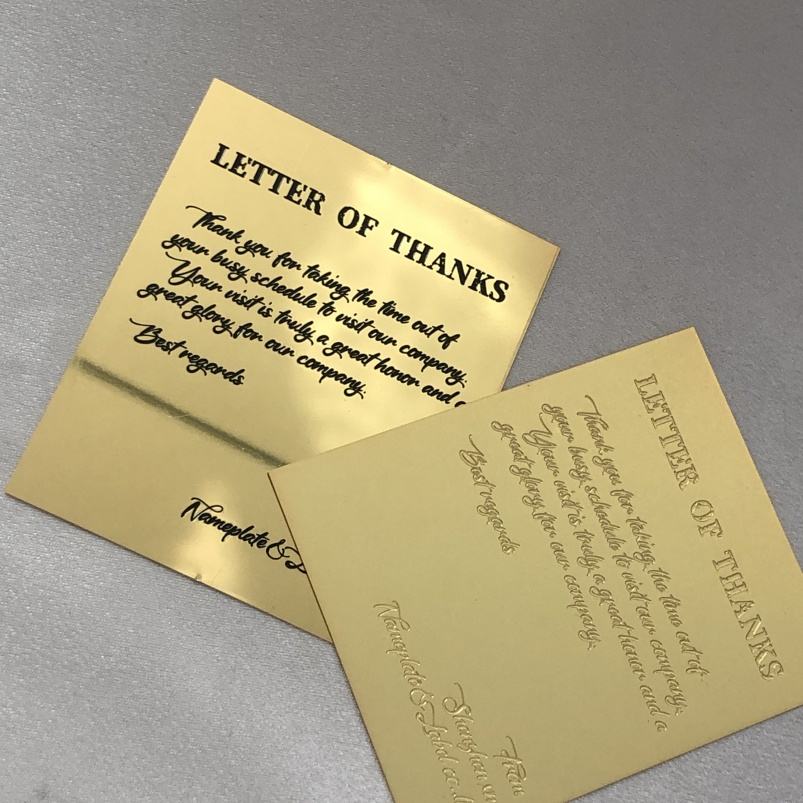 LETTER OF THANKS
Thank you for taking the time out of
your busy schedule to visit our company.
Your visit is truly a great honor and a
great glory for our company.
Best regards
Nameplate &
LETTER OF THANKS
Thank you for taking the time out of
your busy schedule to visit our company.
Your visit is truly a great honor and a
great glory for our company.
Best regards
From
Shenzhen
Nameplate & Label co.